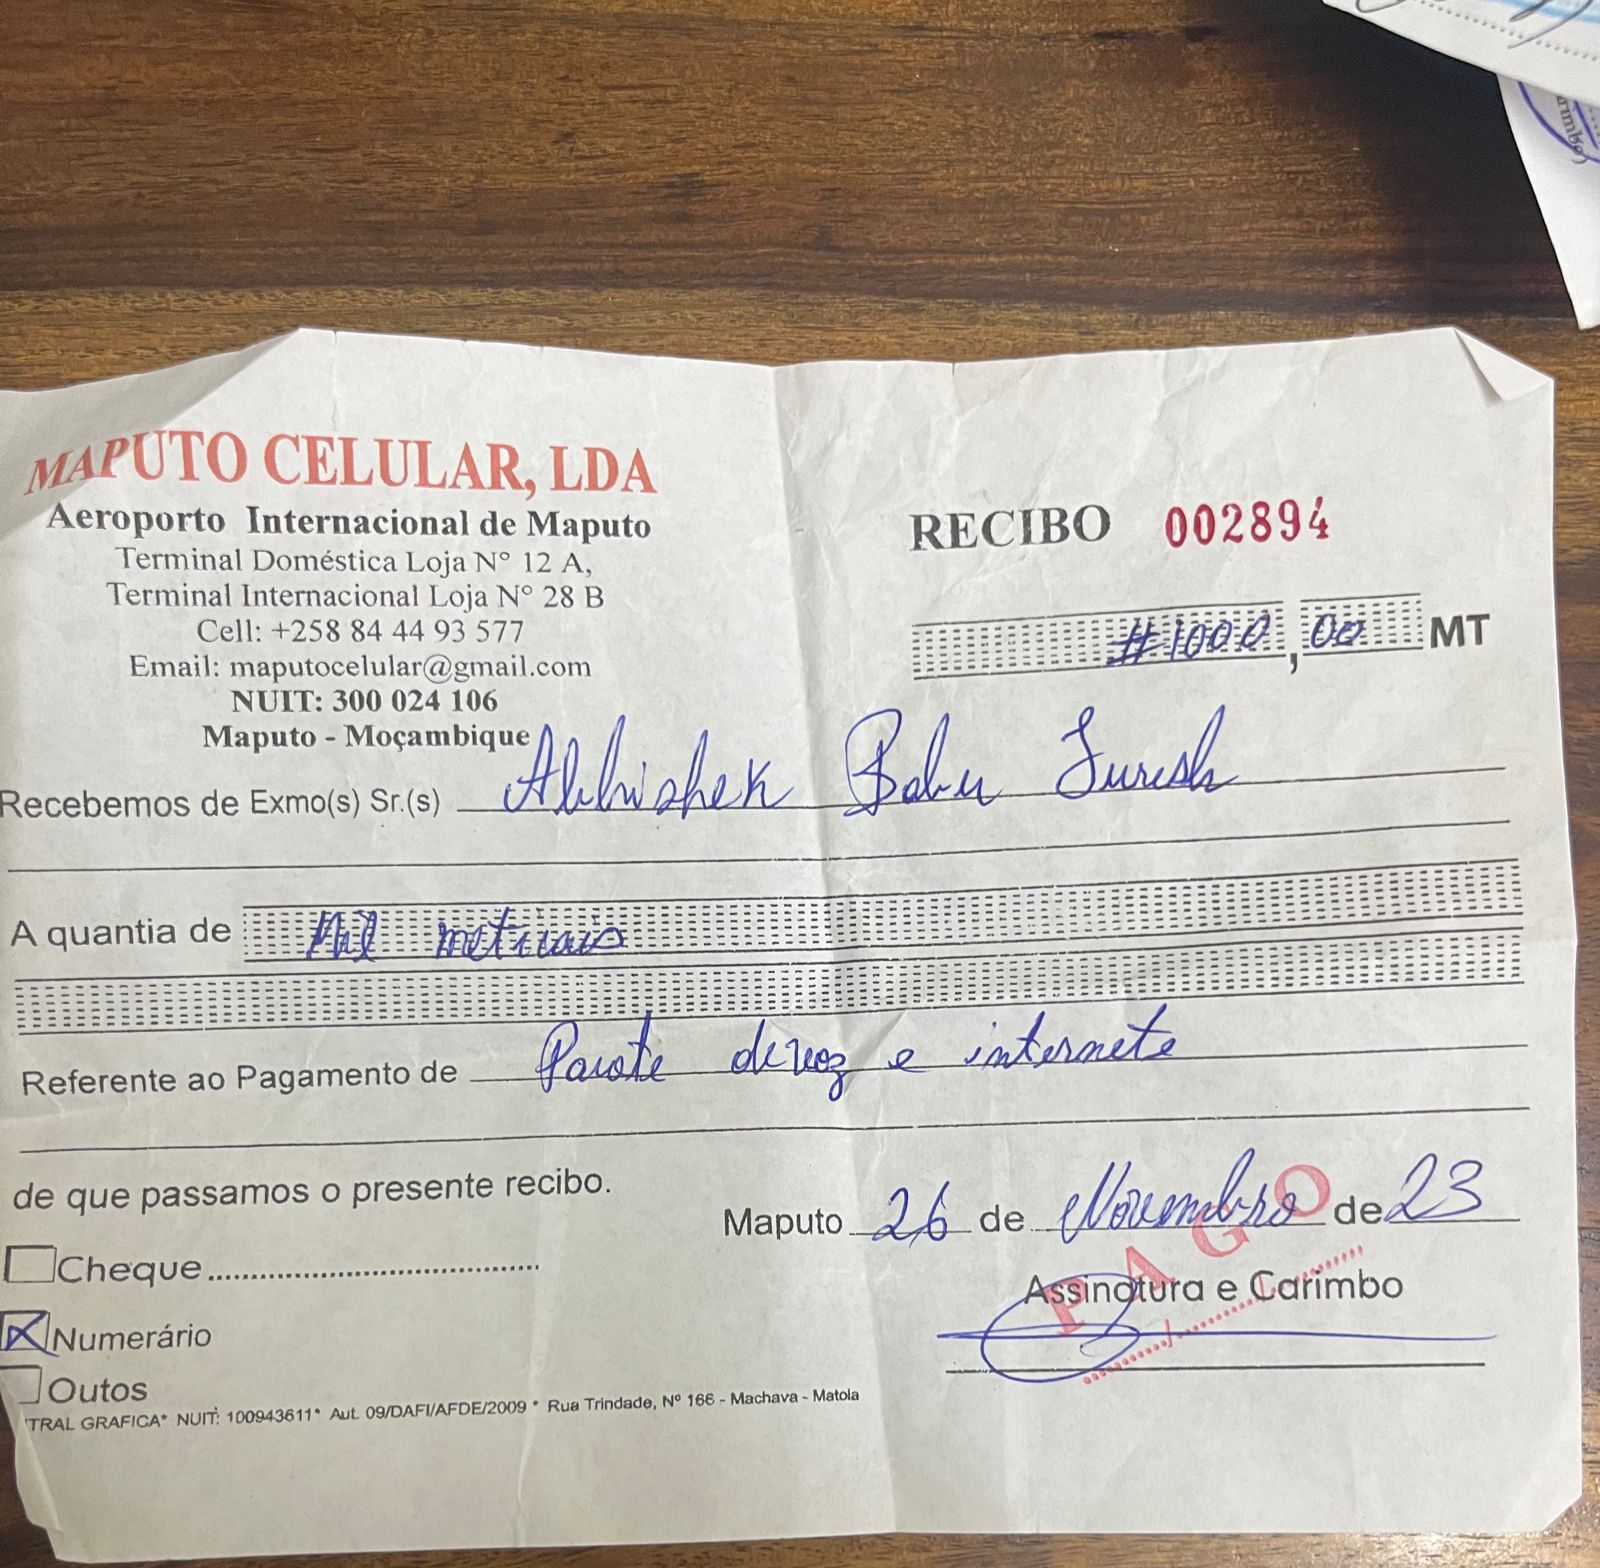 MAPUTO CELULAR, LDA
Aeroporto Internacional de Maputo
Terminal Doméstica Loja N° 12 A,
Terminal Internacional Loja N° 28 B
Cell: +258 84 44 93 577
Email: maputocelular@gmail.com
NUIT: 300 024 106
Maputo - Moçambique
RECIBO 002894
#1000,00 MT
Recebemos de Exmo(s) Sr.(s) Abhishek Babu Suresh
A quantia de Mil meticais
Referente ao Pagamento de Pacote de voz e internete
de que passamos o presente recibo.
Maputo 26 de Novembro de 23
Cheque
Numerário
Outos
Assinatura e Carimbo
PAGO
TRAL GRAFICA* NUIT: 100943611* Aut. 09/DAFI/AFDE/2009 * Rua Trindade, Nº 166 - Machava - Matola